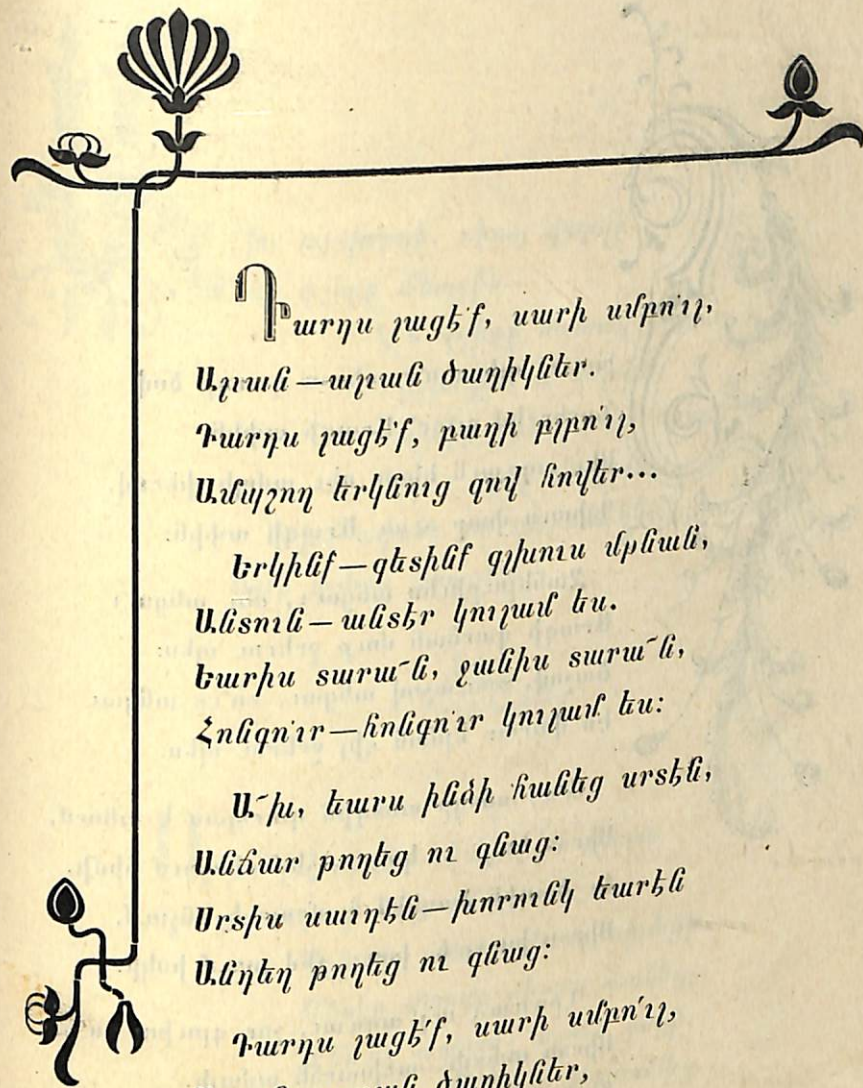 Դարդս լացէ՛ք, սարի սմբո՛ւլ,
Ալուան—ալուան ծաղիկներ.
Դարդս լացէ՛ք, բաղի բլբո՛ւլ,
Ամպշող երկնուց զով հովեր...
Երկինք—գետինք գլխուս մթնան,
Անտուն—անտէր կուլամ ես.
Եարիս տարա՜ն, ջանիս տարա՜ն,
Հոնգո՛ւր—հոնգո՛ւր կուլամ ես։
Ա՜խ, եարս ինձի հանեց սրտէն,
Անճար թողեց ու գնաց։
Սրտիս սաւդէն—խորունկ եարէն
Անդեղ թողեց ու գնաց։
Դարդս լացէ՛ք, սարի սմբո՛ւլ,
ծաղիկներ,